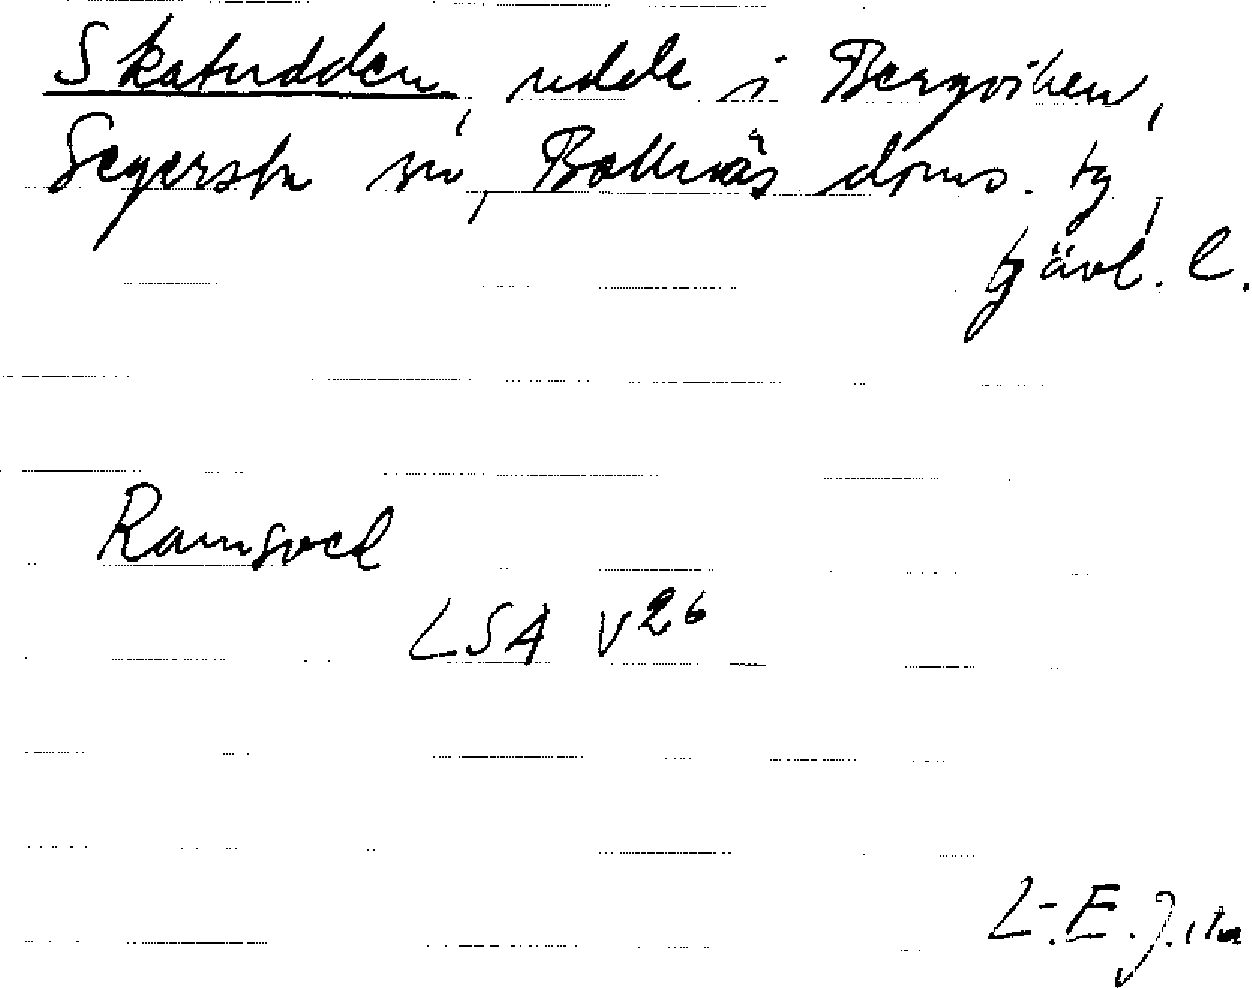 Skatudden, udde i Bergviken,
Segersta sn, Bollnäs doms. tg,
Gävl. l.
Ramsved
LSA V26
L.-E. J.